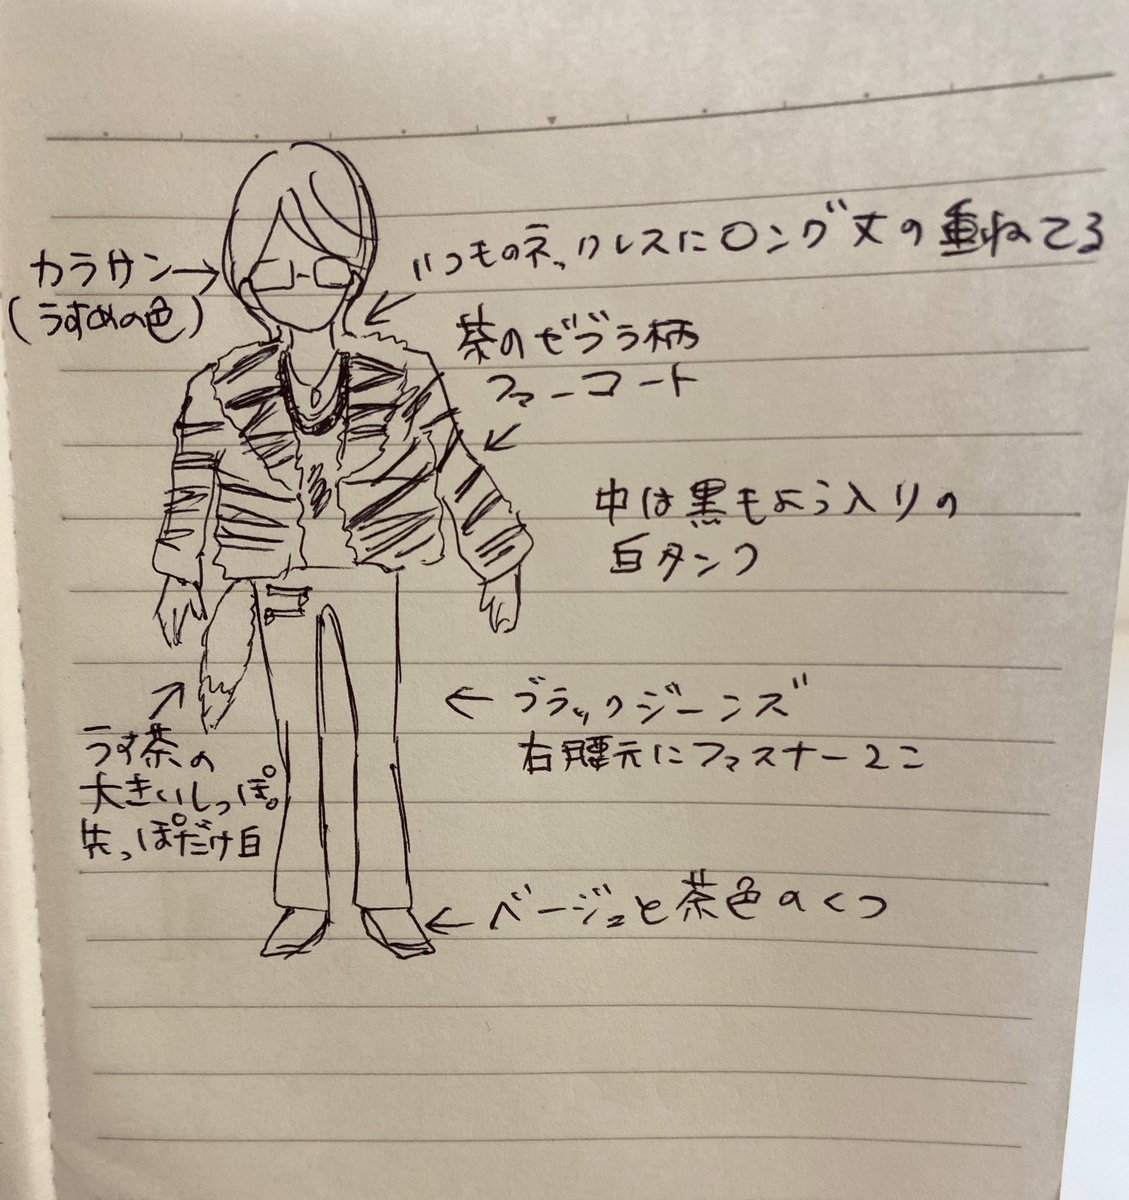 いつものネックレスにロング丈の重ねてる
カラサン
(うすめの色)
茶のゼブラ柄
ファーコート
中は黒もよう入りの
白タンク
ブラックジーンズ
右腰元にファスナー2こ
うす茶の
大きいしっぽ。
先っぽだけ白
ベージュと茶色のくつ